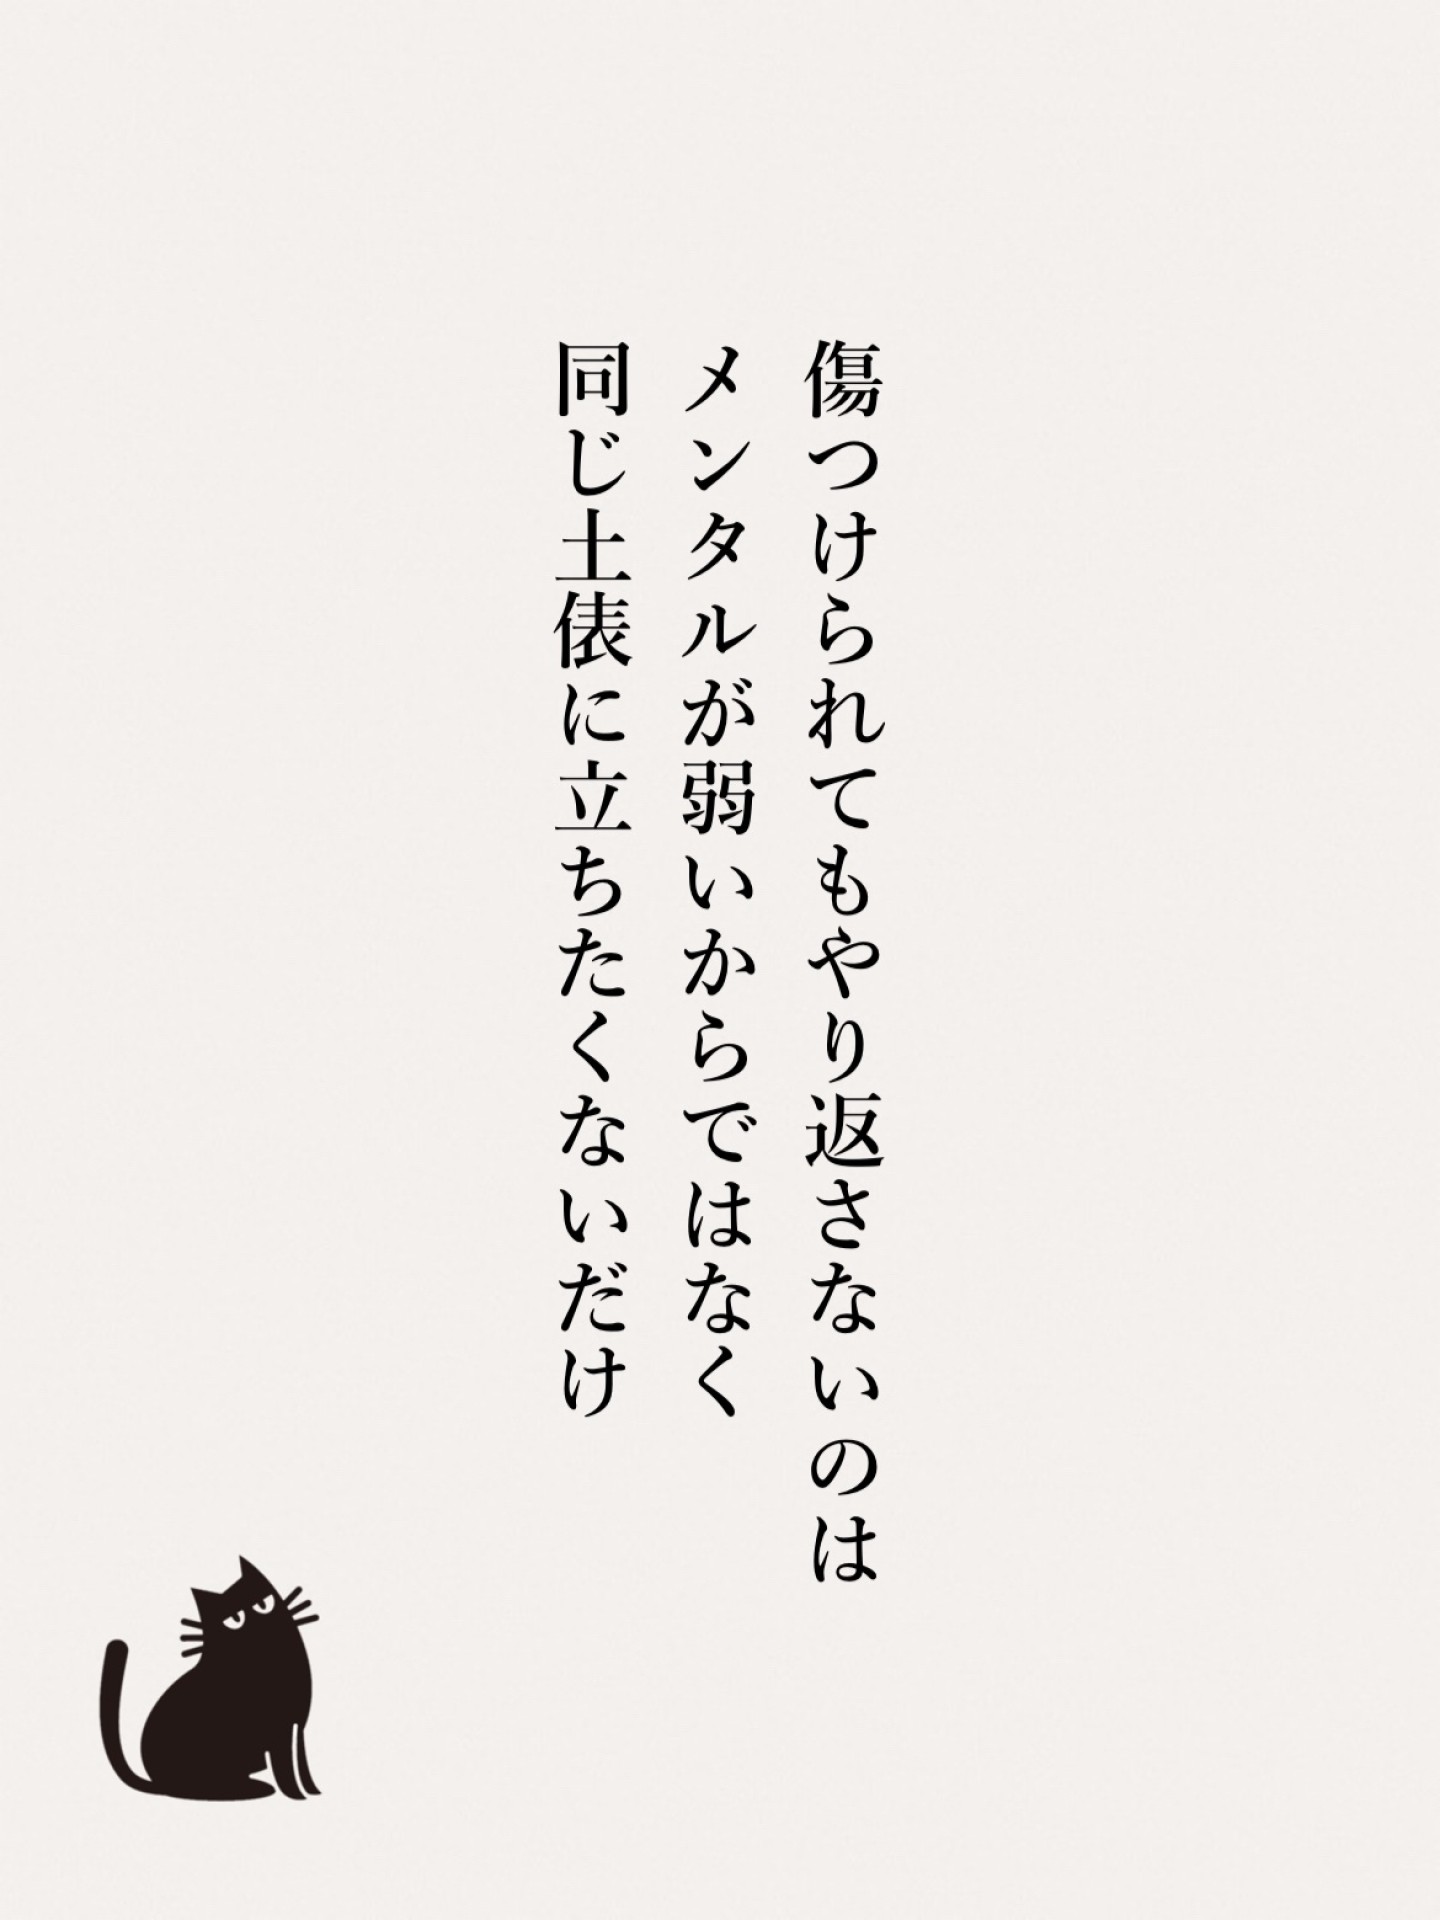 傷つけられてもやり返さないのは
メンタルが弱いからではなく
同じ土俵に立ちたくないだけ